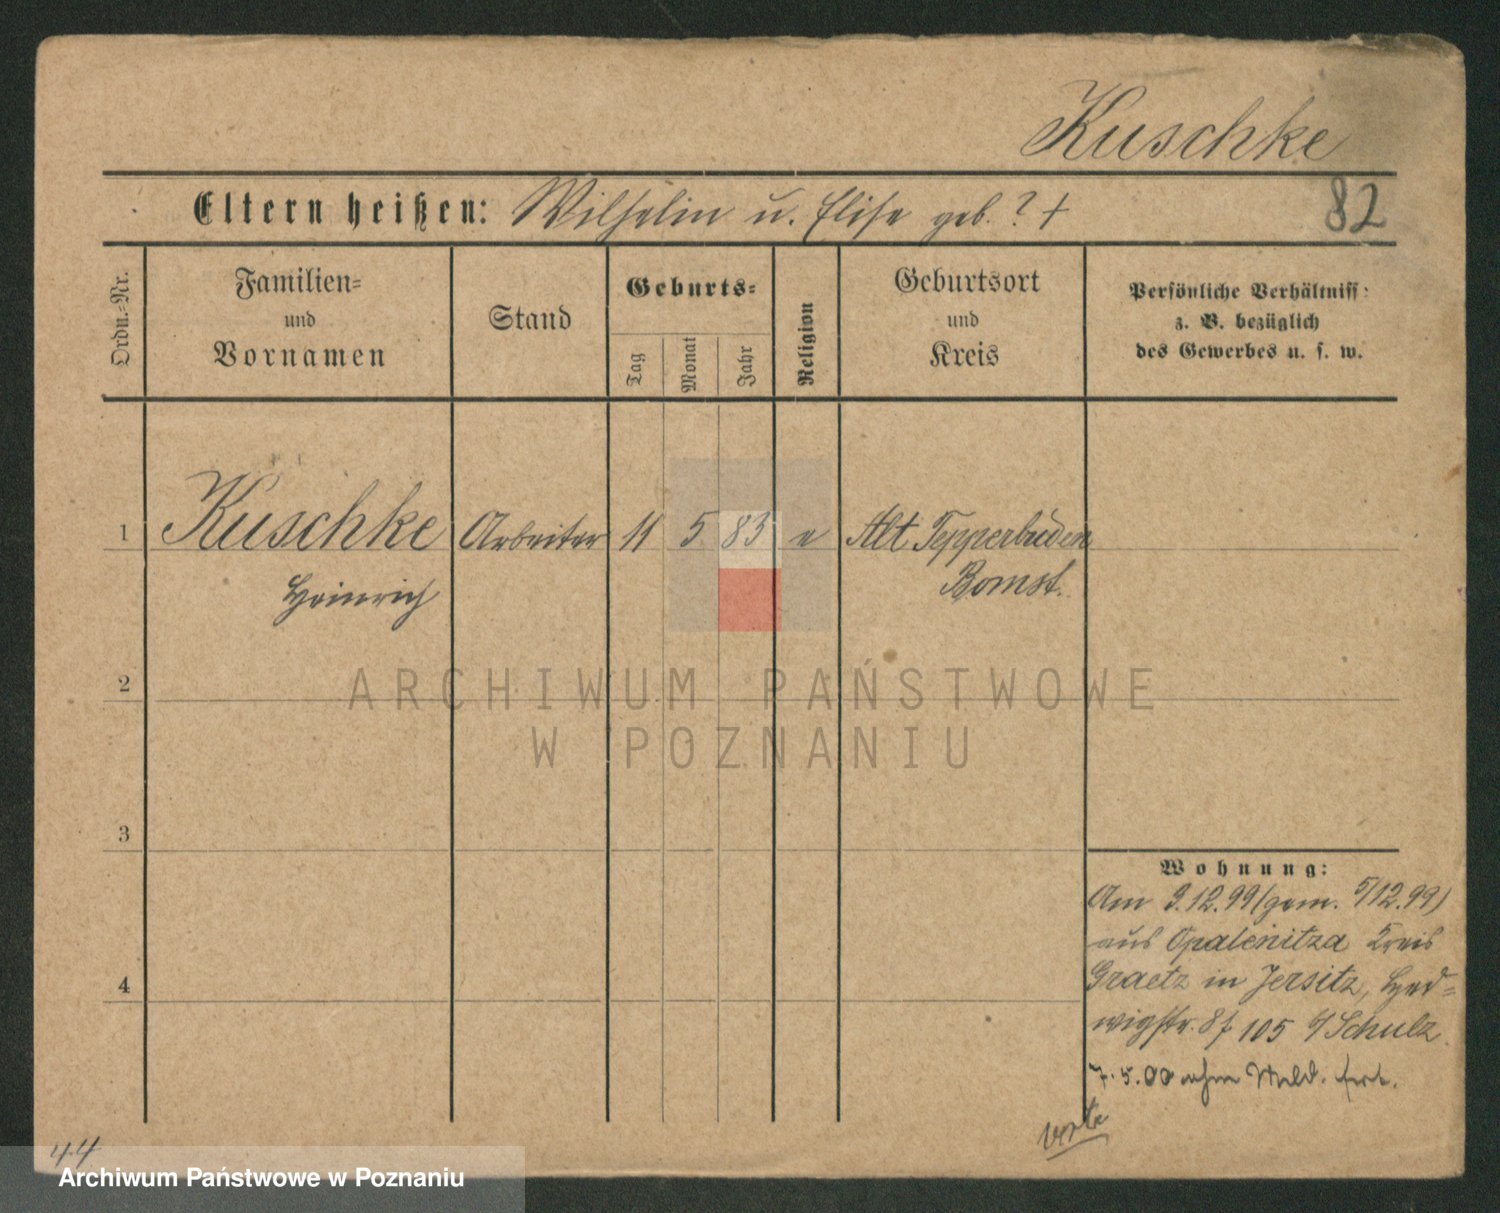 Kuschke
Eltern heißen: Wilhelm u. Elise geb. ? +
82
Ordn.-Nr.
Familien=
und
Vornamen
Stand
Geburts=
Tag
Monat
Jahr
Religion
Geburtsort
und
Kreis
Persönliche Verhältniss:
z. B. bezüglich
des Gewerbes u. s. w.
1 Kuschke Arbeiter 11 5 83 e Alt Tepperbuden
Heinrich Bomst.
2
ARCHIWUM PAŃSTWOWE
W POZNANIU
3
4
Wohnung:
Am 9.12.99 (gem. 5/12.99)
aus Opalenitza Kreis
Graetz in Jersitz, Hed=
wigstr. 8 105 b/Schulz
7.5.00 ohne Meld. fort.
verte
44
Archiwum Państwowe w Poznaniu